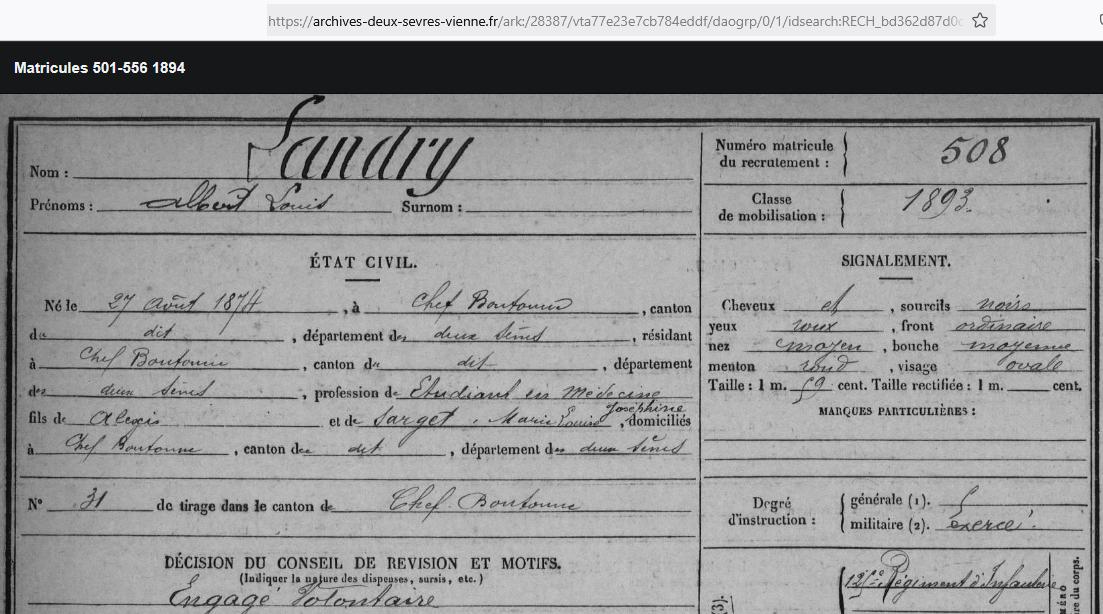 https://archives-deux-sevres-vienne.fr/ark:/28387/vta77e23e7cb784eddf/daogrp/0/1/idsearch:RECH_bd362d87d0c
Matricules 501-556 1894
Nom : Landry
Prénoms : Albert Louis Surnom :
Numéro matricule du recrutement : 508
Classe de mobilisation : 1893.
ÉTAT CIVIL.
Né le 27 Août 1874, à Chef Boutonne, canton
du dit, département des deux Sèvres, résidant
à Chef Boutonne, canton du dit, département
des deux Sèvres, profession de Etudiant en Médecine
fils de Alexis et de Sarget, Marie Louise Joséphine, domiciliés
à Chef Boutonne, canton du dit, département des deux Sèvres
N° 31 de tirage dans le canton de Chef-Boutonne
DÉCISION DU CONSEIL DE REVISION ET MOTIFS.
(Indiquer la nature des dispenses, sursis, etc.)
Engagé Volontaire
SIGNALEMENT.
Cheveux et, sourcils noirs
yeux roux, front ordinaire
nez moyen, bouche moyenne
menton rond, visage ovale
Taille : 1 m. 59 cent. Taille rectifiée : 1 m. cent.
MARQUES PARTICULIÈRES :
Degré d'instruction : générale (1).
militaire (2). exercé.
125e Régiment d'Infanterie
(3).
re du corps.